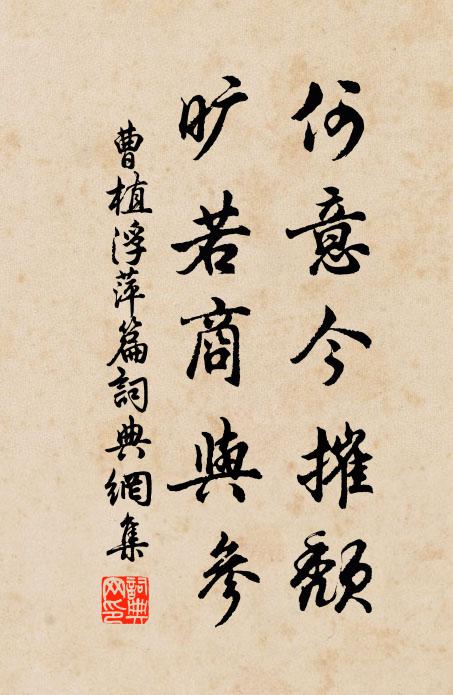 何意今摧颓
旷若商與參
曹植浮萍篇詞典網集
詞典網印